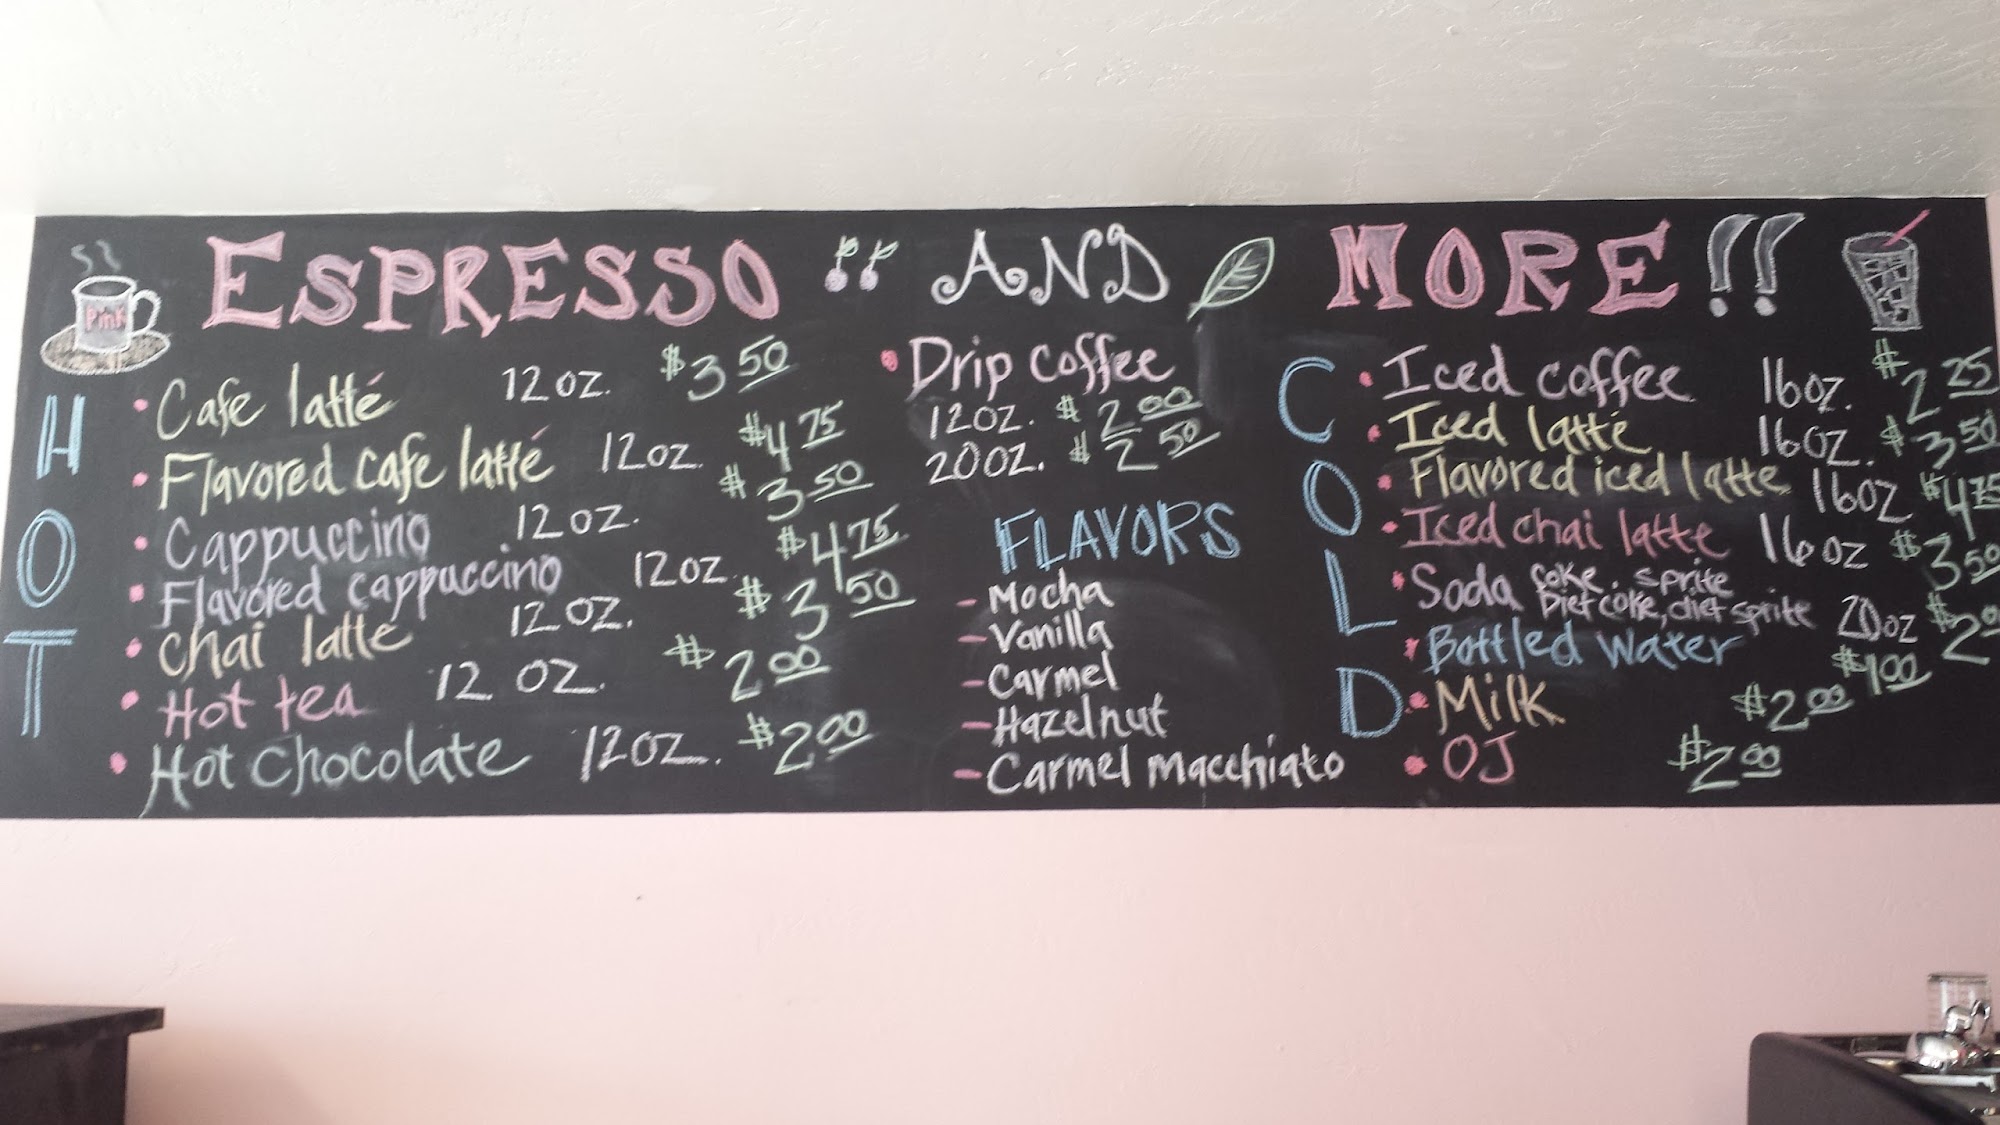 ESPRESSO AND MORE!!
Pink
HOT
Cafe latté 12 oz. $3 50
Flavored cafe latté 12 oz. $4 75
Cappuccino 12 oz. $3 50
Flavored cappuccino 12 oz. $4 75
Chai latte 12 oz. $3 50
Hot tea 12 oz. $2 00
Hot Chocolate 12 oz. $2 00
Drip Coffee
12 oz. $2 00
20 oz. $2 50
FLAVORS
- Mocha
- Vanilla
- Carmel
- Hazelnut
- Carmel Macchiato
COLD
Iced coffee 16 oz. $2 25
Iced latté 16 oz. $3 50
Flavored iced latte 16 oz $4 75
Iced chai latte 16 oz $3 50
Soda Coke, Sprite
Diet coke, diet sprite 20 oz $2 00
Bottled Water $1 00
Milk $2 00
OJ $2 00